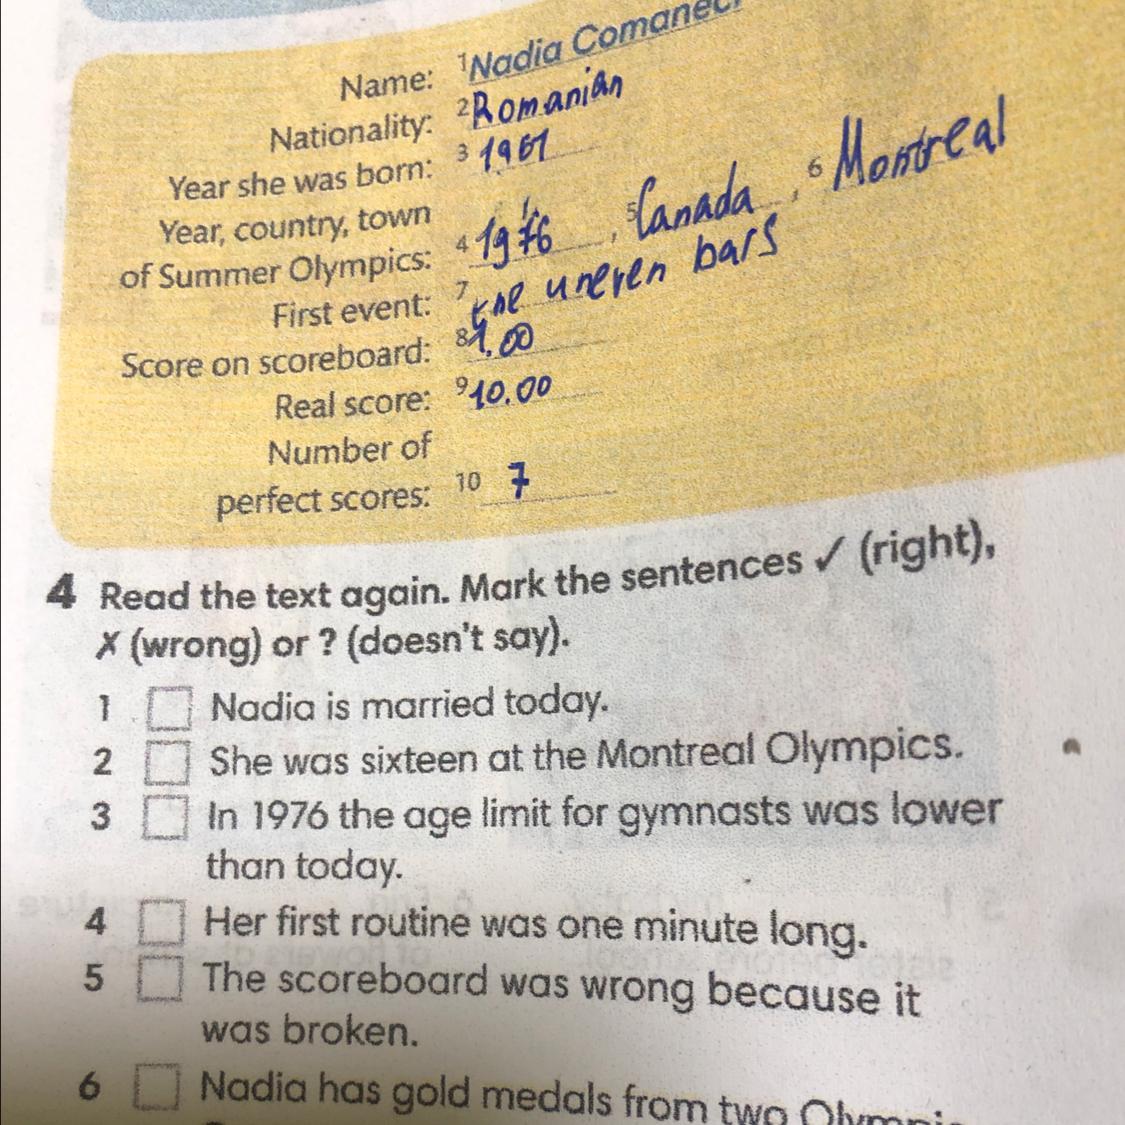 Name: 1 Nadia Comaneci
Nationality: 2 Romanian
Year she was born: 3 1961
Year, country, town
of Summer Olympics: 4 1976, 5 Canada, 6 Montreal
First event: 7 the uneven bars
Score on scoreboard: 8 1.00
Real score: 9 10.00
Number of
perfect scores: 10 7
4 Read the text again. Mark the sentences ✓ (right),
✗ (wrong) or ? (doesn't say).
1 Nadia is married today.
2 She was sixteen at the Montreal Olympics.
3 In 1976 the age limit for gymnasts was lower
than today.
4 Her first routine was one minute long.
5 The scoreboard was wrong because it
was broken.
6 Nadia has gold medals from two